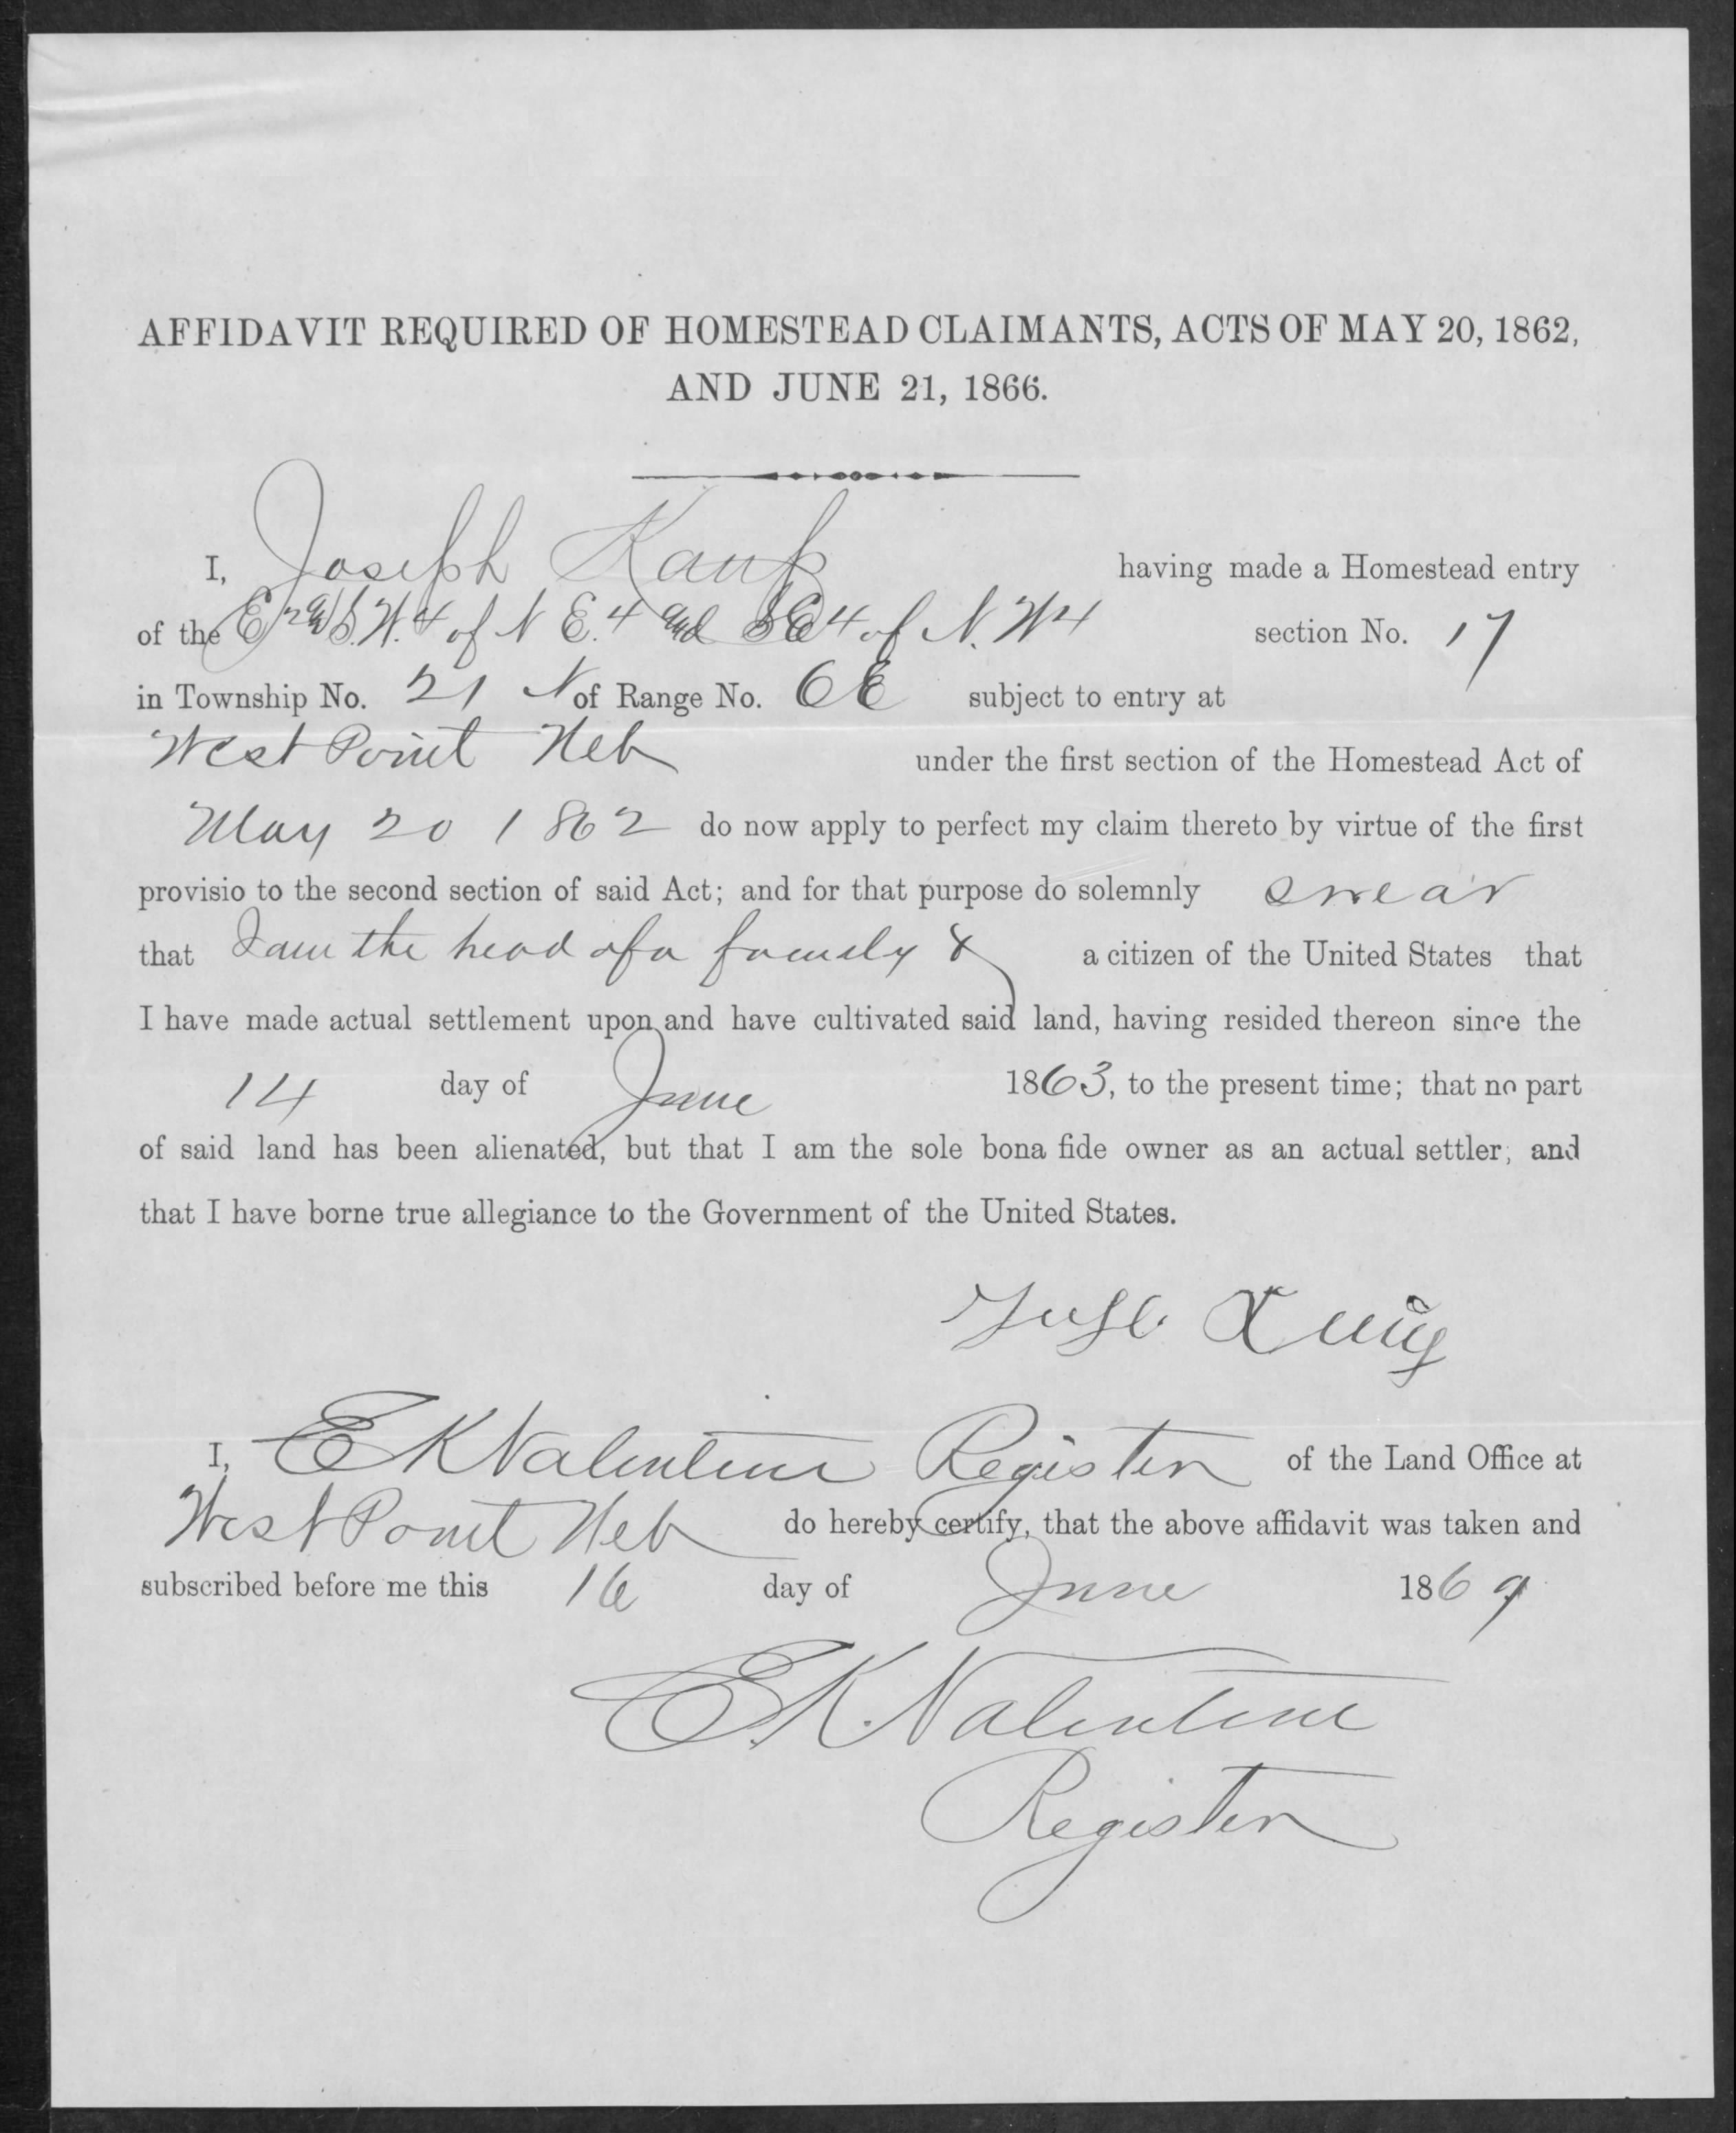 AFFIDAVIT REQUIRED OF HOMESTEAD CLAIMANTS, ACTS OF MAY 20, 1862,
AND JUNE 21, 1866.
I, Joseph Kaup having made a Homestead entry
of the E 2 and S.W. 4 of N E. 4 and S E 4 of N. W 4 section No. 17
in Township No. 21 N of Range No. 6 E subject to entry at
West Point Neb under the first section of the Homestead Act of
May 20 1862 do now apply to perfect my claim thereto by virtue of the first
provisio to the second section of said Act; and for that purpose do solemnly swear
that I am the head of a family & a citizen of the United States that
I have made actual settlement upon and have cultivated said land, having resided thereon since the
14 day of June 1863, to the present time; that no part
of said land has been alienated, but that I am the sole bona fide owner as an actual settler; and
that I have borne true allegiance to the Government of the United States.
I, E K Valentine Register of the Land Office at
West Point Neb do hereby certify, that the above affidavit was taken and
subscribed before me this 16 day of June 1869
E. K. Valentine
Register